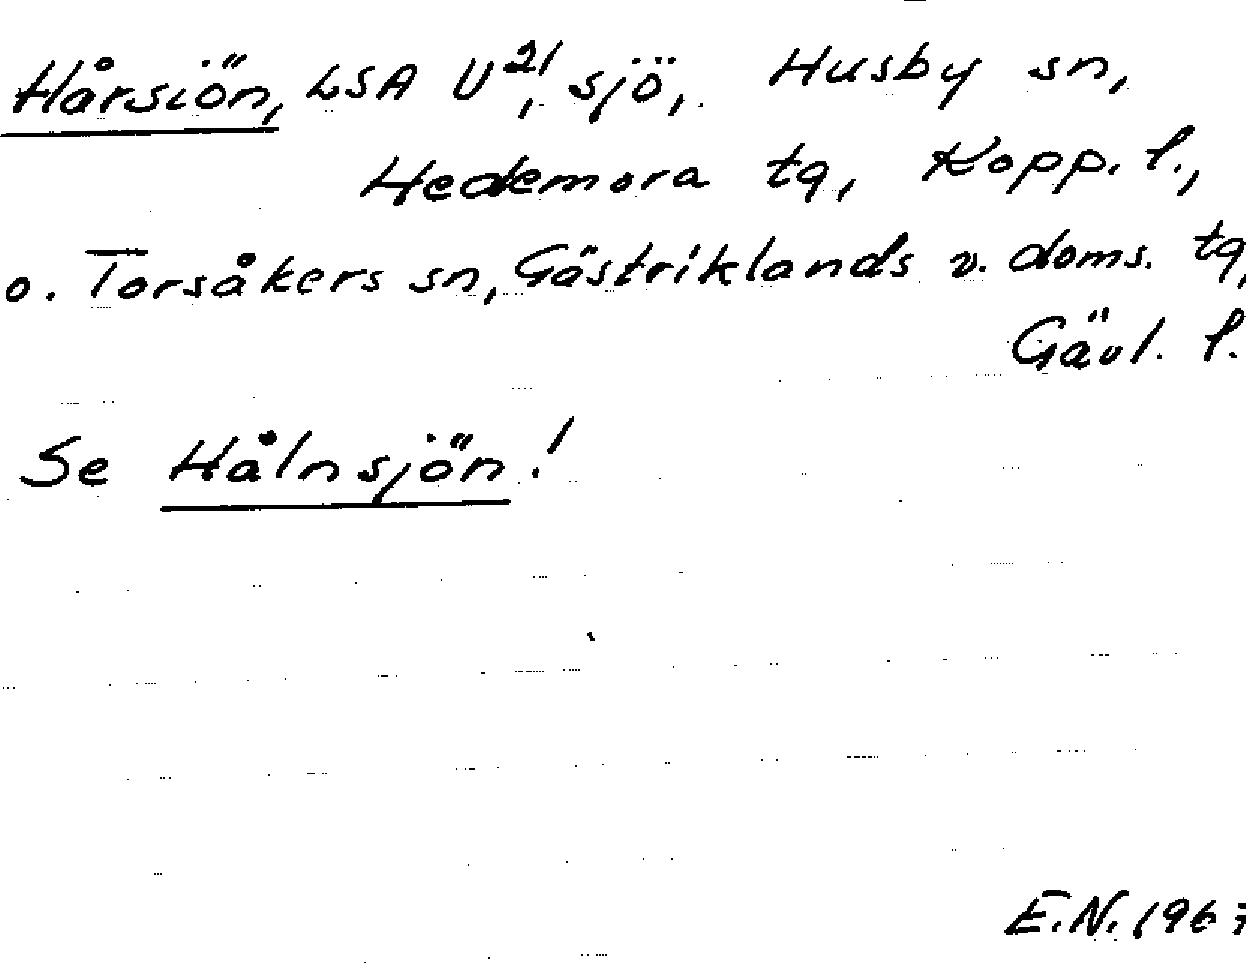 Hårsiön, LSA U 21, sjö, Husby sn,
Hedemora tg, Kopp. l.,
o. Torsåkers sn, Gästriklands v. doms. tg,
Gävl. l.
Se Hålnsjön!
E.N. 1967